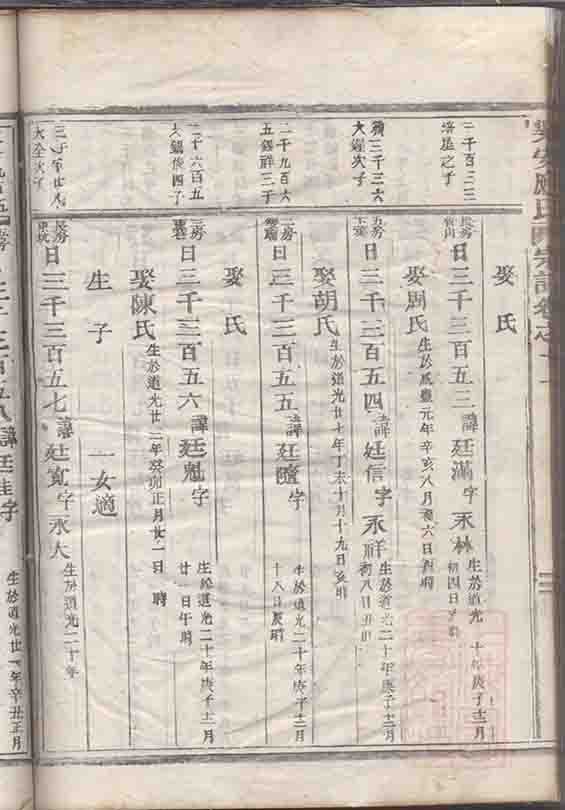 應氏宗譜卷之
二千百三三
培星之子
長房
日三千三百五三諱廷滿字永林
生於道光二十年庚子十二月
初四日
娶氏
娶周氏
生於咸豐元年辛亥八月初六日酉時
三千三六
大鋸次子
五房
日三千三百五四諱廷信字永祥
生於道光二十年庚子十二月
初八日丑時
娶胡氏
生於道光廿七年丁未十月十九日亥時
二千九百六
五錫祥三子
二房
日三千三百五五諱廷隨字
生於道光二十年庚子十二月
十八日辰時
娶氏
二千六百五
大錫俊四子
三房
日三千三百五六諱廷魁字
生於道光二十年庚子十二月
廿一日午時
娶陳氏
生於道光廿二年癸卯正月廿一日 時
生子
一女適
大全次子
長房
日三千三百五七諱廷寬字永大
生於道光二十年
三千三百五八諱廷桂字
生於道光廿一年辛丑正月